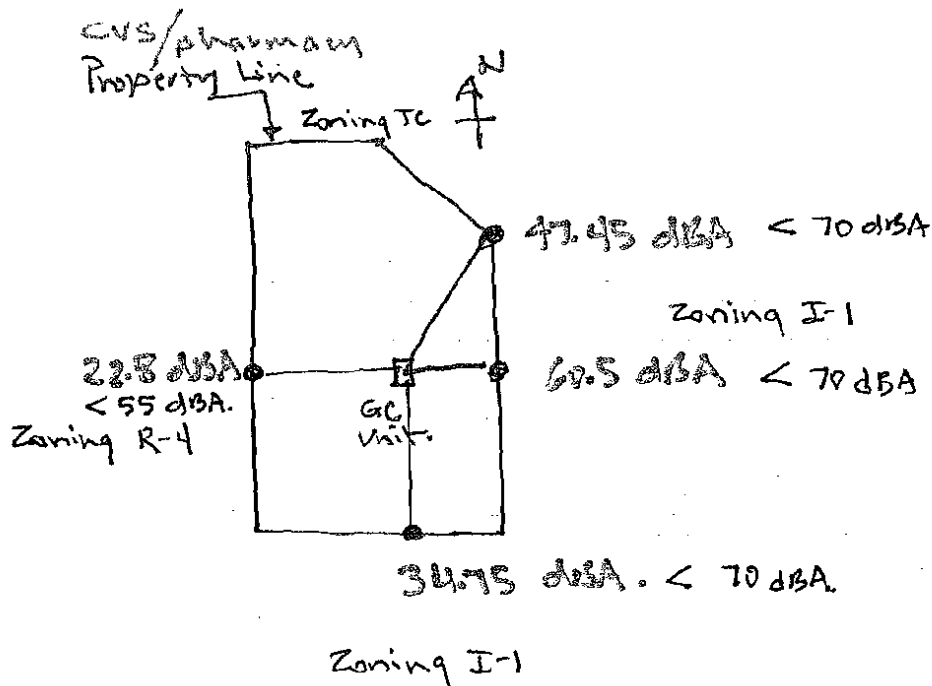 CVS/pharmacy
Property Line
N
Zoning TC
47.45 dBA < 70 dBA
Zoning I-1
22.8 dBA
< 55 dBA.
Zoning R-4
GC
Unit.
60.5 dBA < 70 dBA
34.75 dBA. < 70 dBA.
Zoning I-1